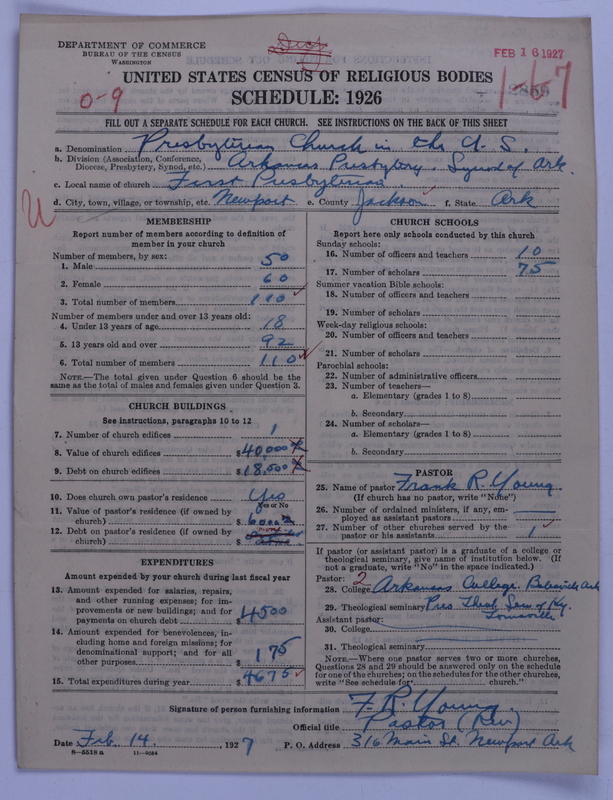 DEPARTMENT OF COMMERCE
BUREAU OF THE CENSUS
WASHINGTON
FEB 16 1927
1-67
0-9
UNITED STATES CENSUS OF RELIGIOUS BODIES
SCHEDULE: 1926
FILL OUT A SEPARATE SCHEDULE FOR EACH CHURCH. SEE INSTRUCTIONS ON THE BACK OF THIS SHEET
a. Denomination Presbyterian Church in the U.S.
b. Division (Association, Conference, Diocese, Presbytery, Synod, etc.) Arkansas Presbytery, Synod of Ark.
c. Local name of church First Presbyterian
d. City, town, village, or township, etc. Newport e. County Jackson f. State Ark
MEMBERSHIP
Report number of members according to definition of
member in your church
Number of members, by sex:
1. Male 50
2. Female 60
3. Total number of members 110
Number of members under and over 13 years old:
4. Under 13 years of age 18
5. 13 years old and over 92
6. Total number of members 110
NOTE.—The total given under Question 6 should be
same as the total of males and females given under Question 3.
CHURCH BUILDINGS
See instructions, paragraphs 10 to 12
7. Number of church edifices 1
8. Value of church edifices $40,000
9. Debt on church edifices $18,500
10. Does church own pastor's residence Yes
Yes or No
11. Value of pastor's residence (if owned by
church) $6000
12. Debt on pastor's residence (if owned by
church) $ none
EXPENDITURES
Amount expended by your church during last fiscal year
13. Amount expended for salaries, repairs,
and other running expenses; for im-
provements or new buildings; and for
payments on church debt $4500
14. Amount expended for benevolences, in-
cluding home and foreign missions; for
denominational support; and for all
other purposes $175
15. Total expenditures during year $4675
CHURCH SCHOOLS
Report here only schools conducted by this church
Sunday schools:
16. Number of officers and teachers 10
17. Number of scholars 75
Summer vacation Bible schools:
18. Number of officers and teachers
19. Number of scholars
Week-day religious schools:
20. Number of officers and teachers
21. Number of scholars
Parochial schools:
22. Number of administrative officers
23. Number of teachers—
a. Elementary (grades 1 to 8)
b. Secondary
24. Number of scholars—
a. Elementary (grades 1 to 8)
b. Secondary
PASTOR
25. Name of pastor Frank R. Young
(If church has no pastor, write "None")
26. Number of ordained ministers, if any, em-
ployed as assistant pastors
27. Number of other churches served by the
pastor or his assistants 1
If pastor (or assistant pastor) is a graduate of a college or
theological seminary, give name of institution below. (If
not a graduate, write "No" in the space indicated.)
Pastor: 2
28. College Arkansas College, Batesville Ark
29. Theological seminary Pres Theol Sem of Ky.
Louisville
Assistant pastor:
30. College
31. Theological seminary
NOTE.—Where one pastor serves two or more churches,
Questions 28 and 29 should be answered only on the schedule
for one of the churches; on the schedules for the other churches,
write "See schedule for church."
Signature of person furnishing information F. R. Young
Official title Pastor (Rev)
Date Feb. 14, 1927 P. O. Address 316 Main St. Newport Ark
8—5518 a